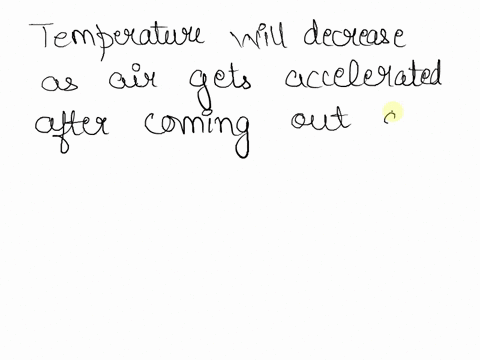 Temperature will decrease
as air gets accelerated
after coming out